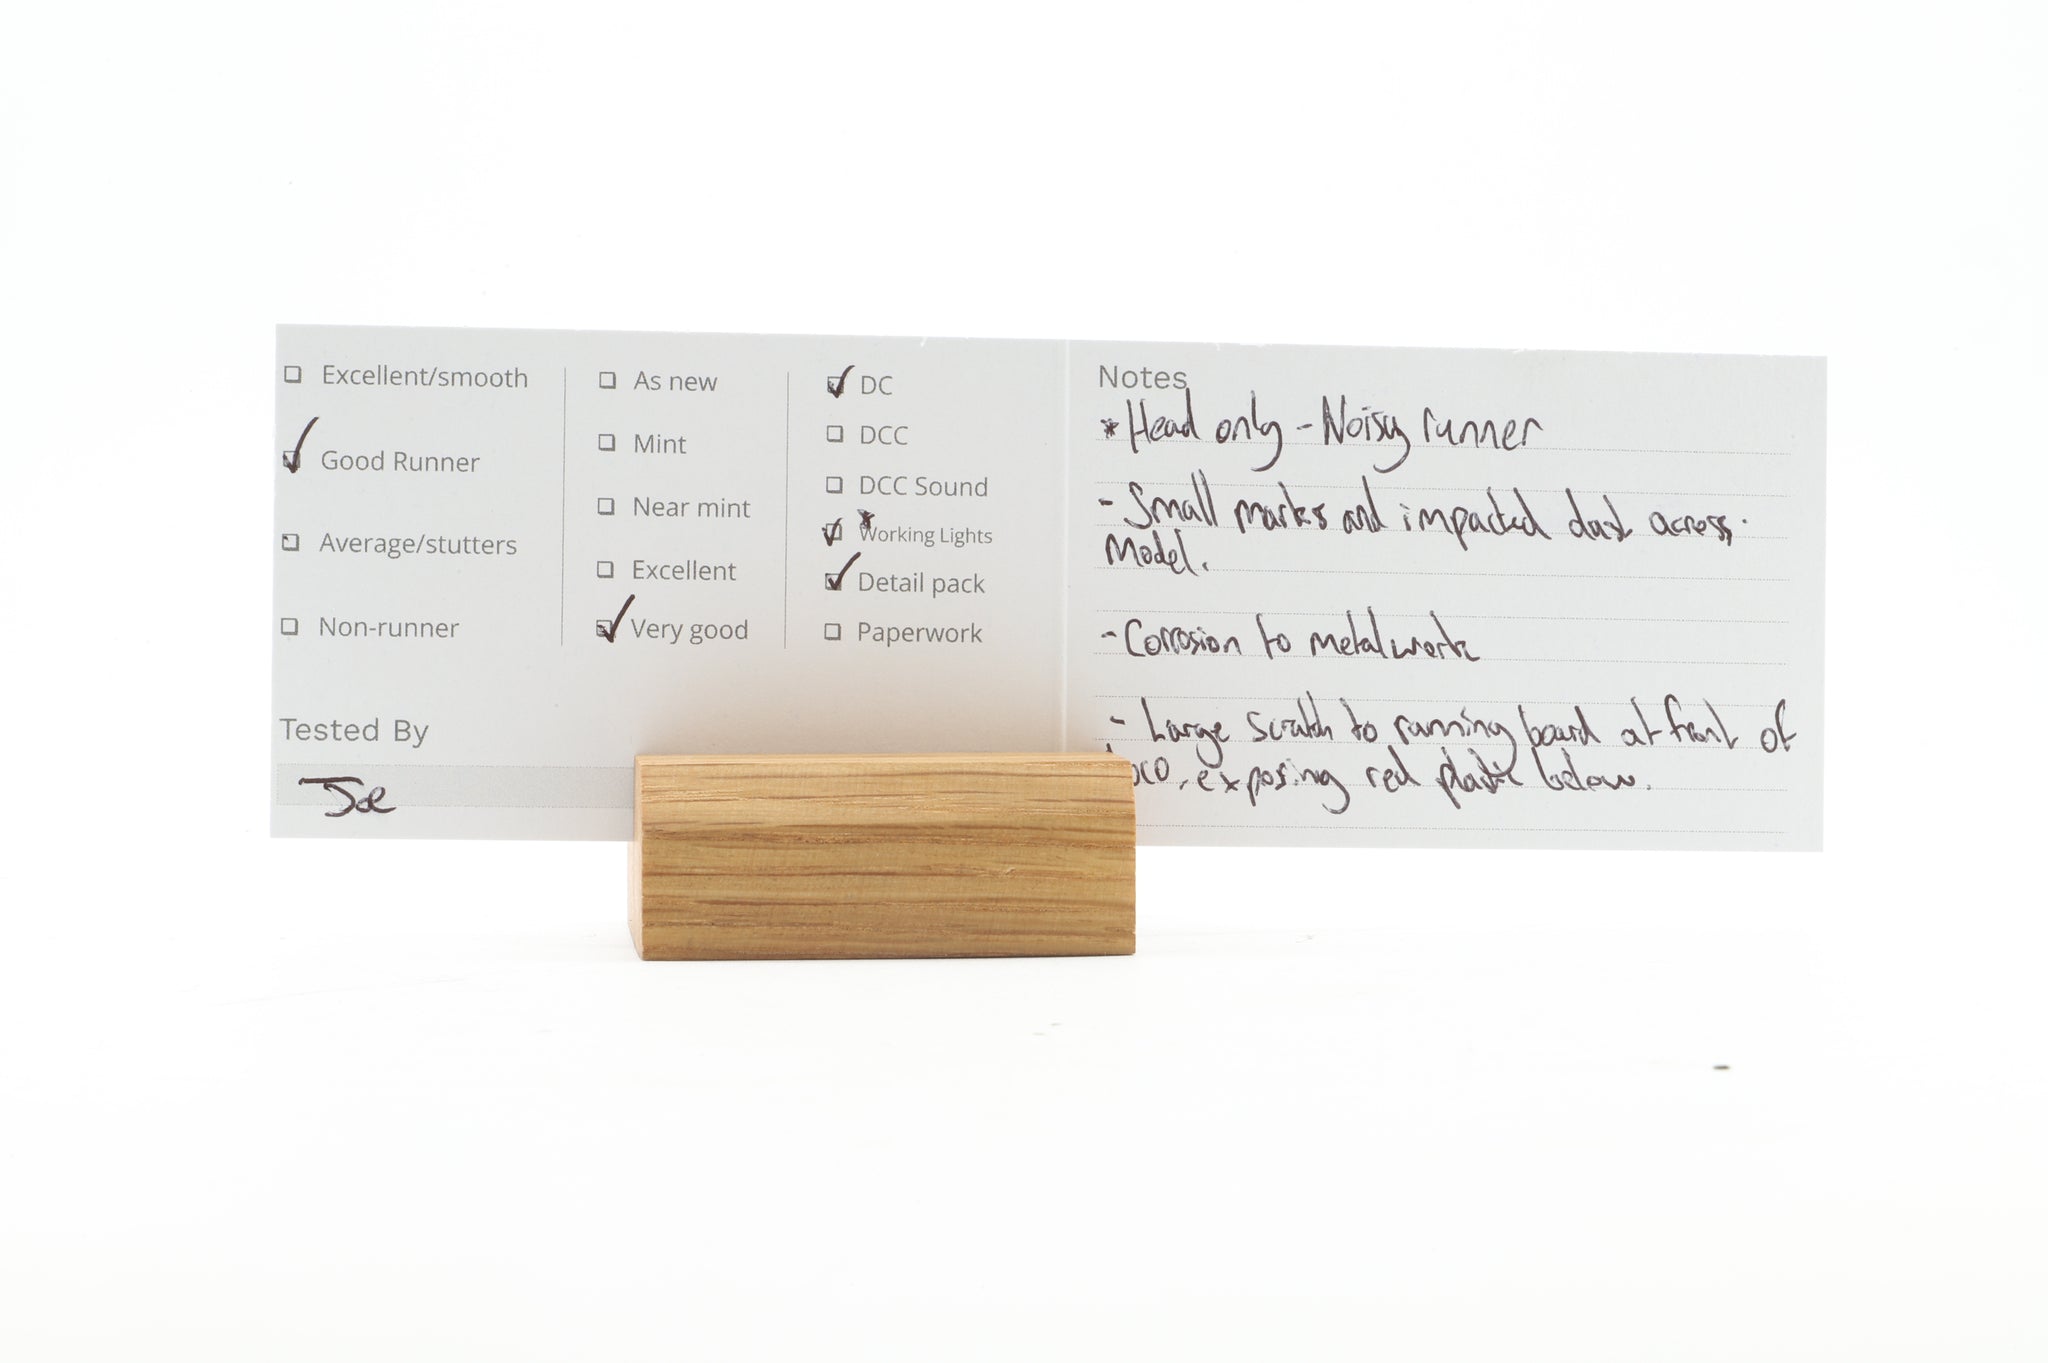 Excellent/smooth
Good Runner
Average/stutters
Non-runner
As new
Mint
Near mint
Excellent
Very good
DC
DCC
DCC Sound
*
Working Lights
Detail pack
Paperwork
Tested By
Joe
Notes
* Head only - Noisy runner
- Small marks and impacted dust across
Model.
- Corrosion to metalwork
- Large scratch to running board at front of
loco, exposing red plastic below.